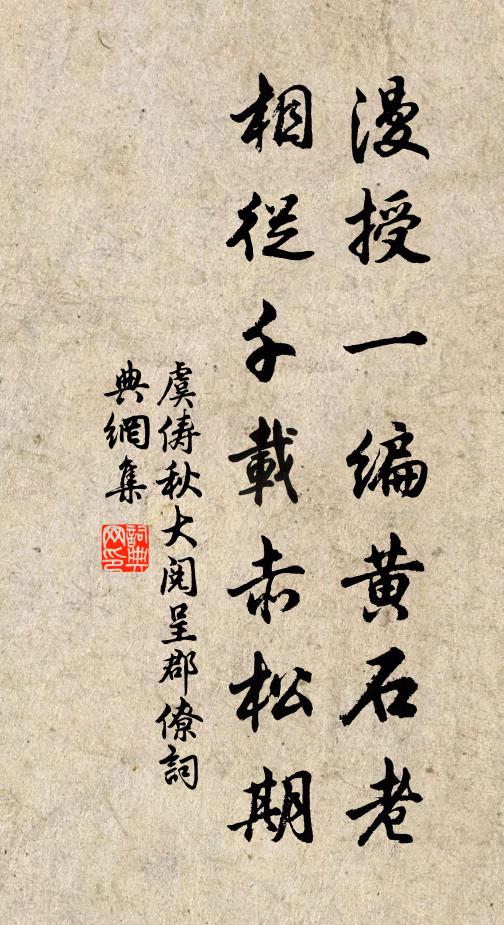 漫授一编黄石老
相從千載赤松期
虞儔秋大阅呈郡僚詞
典網集
詞典
网印